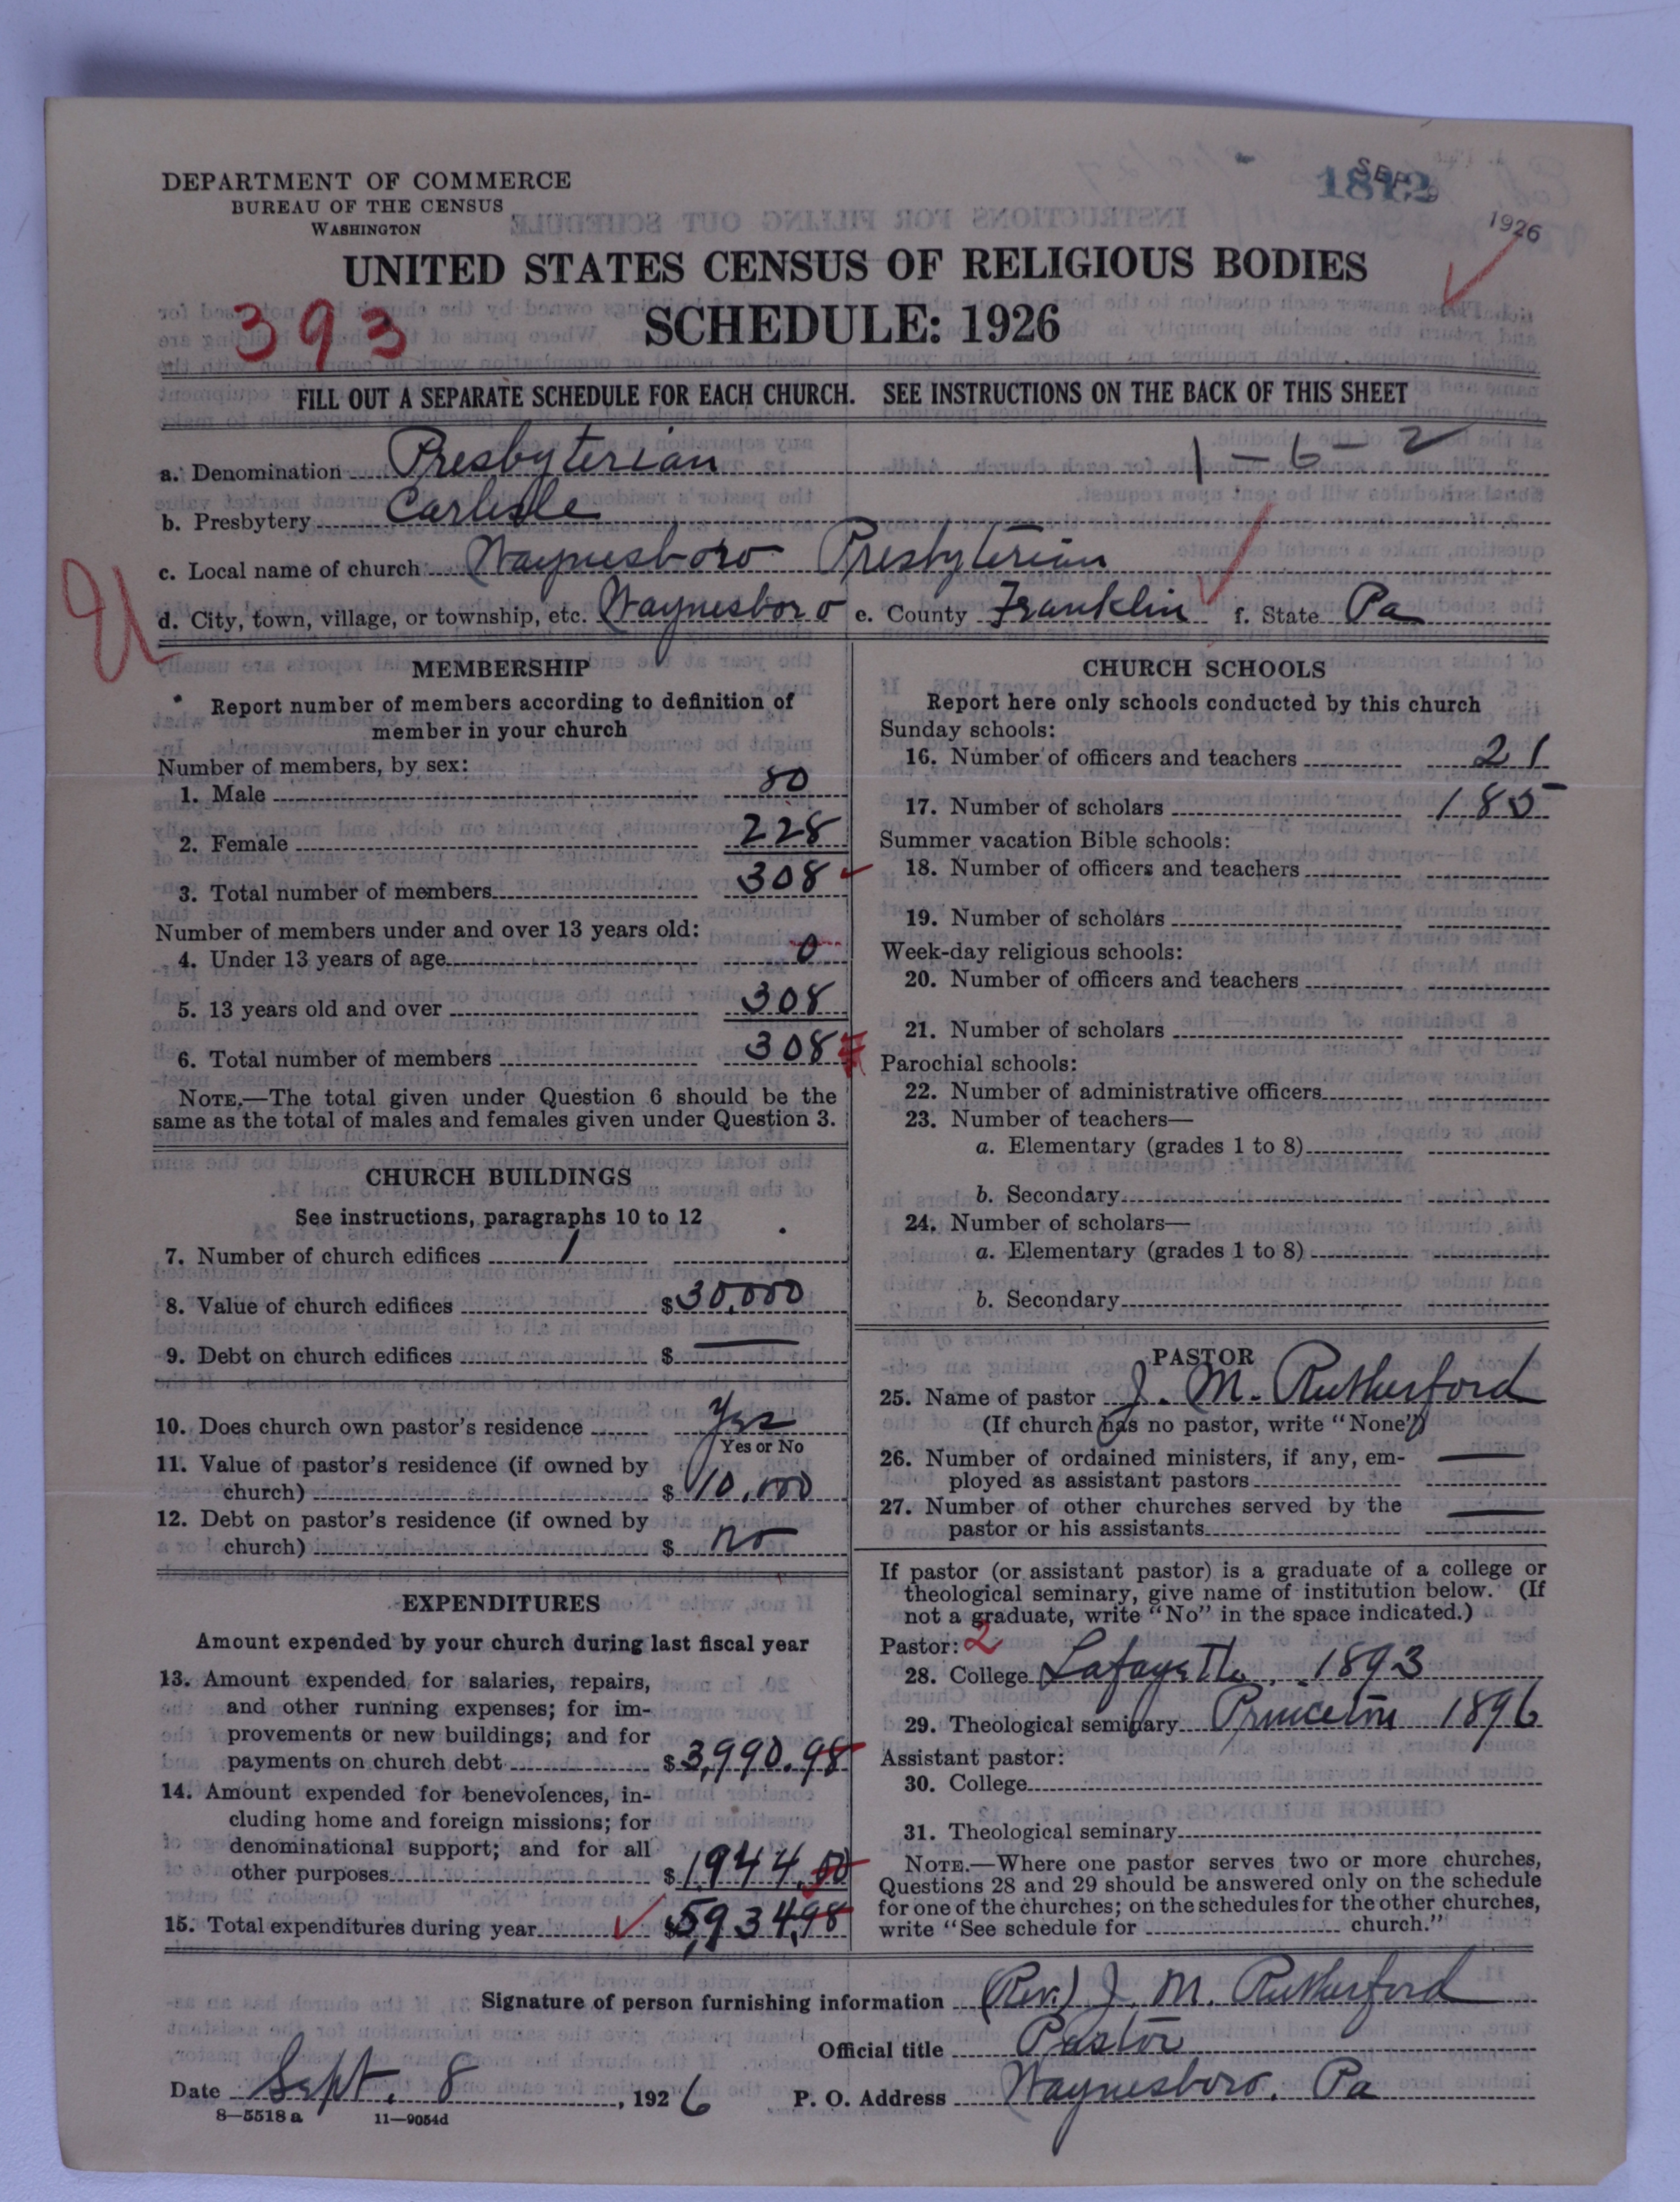 DEPARTMENT OF COMMERCE
BUREAU OF THE CENSUS
WASHINGTON
1926
UNITED STATES CENSUS OF RELIGIOUS BODIES
SCHEDULE: 1926
393
FILL OUT A SEPARATE SCHEDULE FOR EACH CHURCH. SEE INSTRUCTIONS ON THE BACK OF THIS SHEET
a. Denomination Presbyterian 1-6-2
b. Presbytery Carlisle
c. Local name of church Waynesboro Presbyterian
d. City, town, village, or township, etc. Waynesboro e. County Franklin f. State Pa
MEMBERSHIP
Report number of members according to definition of
member in your church
Number of members, by sex:
1. Male 80
2. Female 228
3. Total number of members 308
Number of members under and over 13 years old:
4. Under 13 years of age 0
5. 13 years old and over 308
6. Total number of members 308
NOTE.—The total given under Question 6 should be the
same as the total of males and females given under Question 3.
CHURCH BUILDINGS
See instructions, paragraphs 10 to 12
7. Number of church edifices 1
8. Value of church edifices $30,000
9. Debt on church edifices $ —
10. Does church own pastor's residence Yes
Yes or No
11. Value of pastor's residence (if owned by
church) $ 10,000
12. Debt on pastor's residence (if owned by
church) $ no
EXPENDITURES
Amount expended by your church during last fiscal year
13. Amount expended for salaries, repairs,
and other running expenses; for im-
provements or new buildings; and for
payments on church debt $3,990.98
14. Amount expended for benevolences, in-
cluding home and foreign missions; for
denominational support; and for all
other purposes $1944.00
15. Total expenditures during year $5,934.98
CHURCH SCHOOLS
Report here only schools conducted by this church
Sunday schools:
16. Number of officers and teachers 21
17. Number of scholars 185
Summer vacation Bible schools:
18. Number of officers and teachers
19. Number of scholars
Week-day religious schools:
20. Number of officers and teachers
21. Number of scholars
Parochial schools:
22. Number of administrative officers
23. Number of teachers—
a. Elementary (grades 1 to 8)
b. Secondary
24. Number of scholars—
a. Elementary (grades 1 to 8)
b. Secondary
PASTOR
25. Name of pastor J. M. Rutherford
(If church has no pastor, write "None")
26. Number of ordained ministers, if any, em-
ployed as assistant pastors —
27. Number of other churches served by the
pastor or his assistants —
If pastor (or assistant pastor) is a graduate of a college or
theological seminary, give name of institution below. (If
not a graduate, write "No" in the space indicated.)
Pastor: 2
28. College Lafayette, 1893
29. Theological seminary Princeton 1896
Assistant pastor:
30. College
31. Theological seminary
NOTE.—Where one pastor serves two or more churches,
Questions 28 and 29 should be answered only on the schedule
for one of the churches; on the schedules for the other churches,
write "See schedule for church."
Signature of person furnishing information (Rev.) J. M. Rutherford
Official title Pastor
Date Sept. 8, 1926 P. O. Address Waynesboro, Pa
8—5518 a 11—9054d